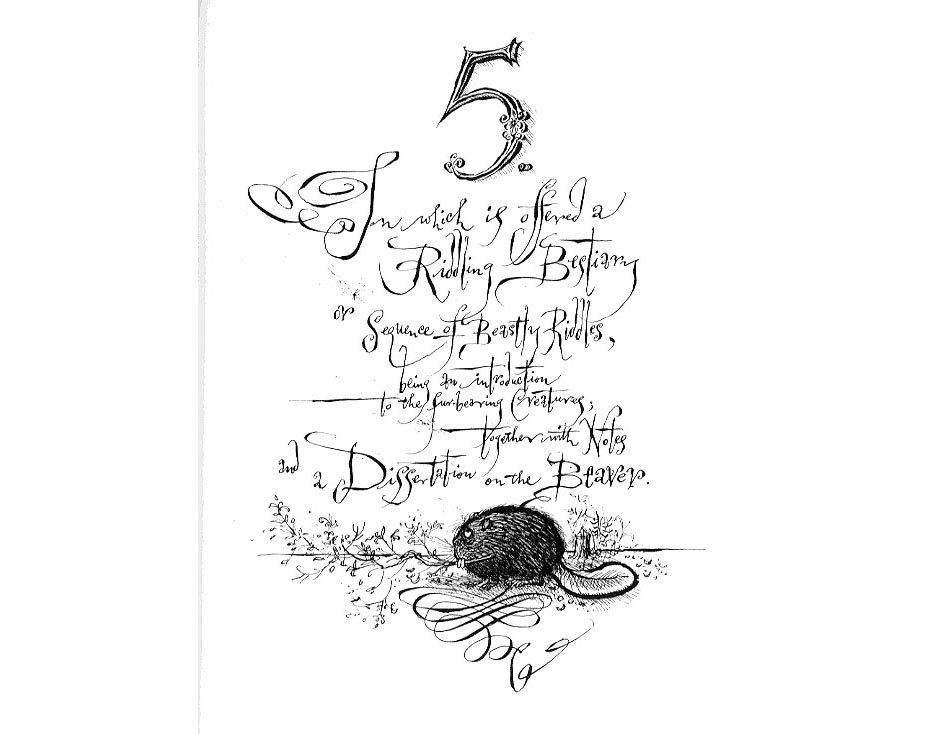 5.
In which is offered a
Riddling Bestiary
or Sequence of Beastly Riddles,
being an introduction
to the fur-bearing Creatures;
together with Notes
and a Dissertation on the Beaver.